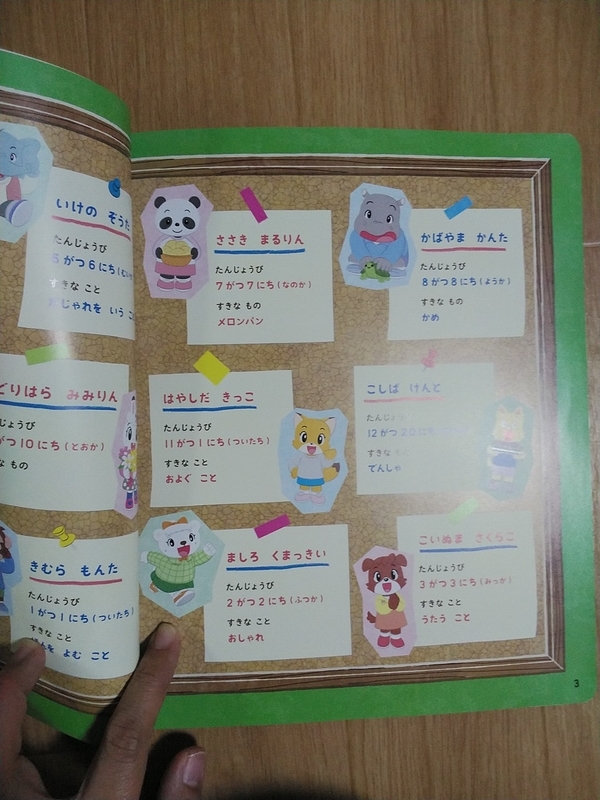 いけの ぞうた
たんじょうび
6にち
すきな こと
じゃれを いう
みみりん
10にち(とおか)
もの
きむら もんた
たんじょうび
1がつ1にち(ついたち)
すきな こと
よむ こと
ささき まるりん
たんじょうび
7がつ7にち(なのか)
すきな もの
メロンパン
かばやま かんた
たんじょうび
8がつ8にち(ようか)
すきな もの
かめ
はやしだ きっこ
たんじょうび
11がつ1にち(ついたち)
すきな こと
およぐ こと
こしば けんと
たんじょうび
12がつ20にち
すきな
でんしゃ
ましろ くまっきい
たんじょうび
2がつ2にち(ふつか)
すきな こと
おしゃれ
こいぬま さくらこ
たんじょうび
3がつ3にち(みっか)
すきな こと
うたう こと
3